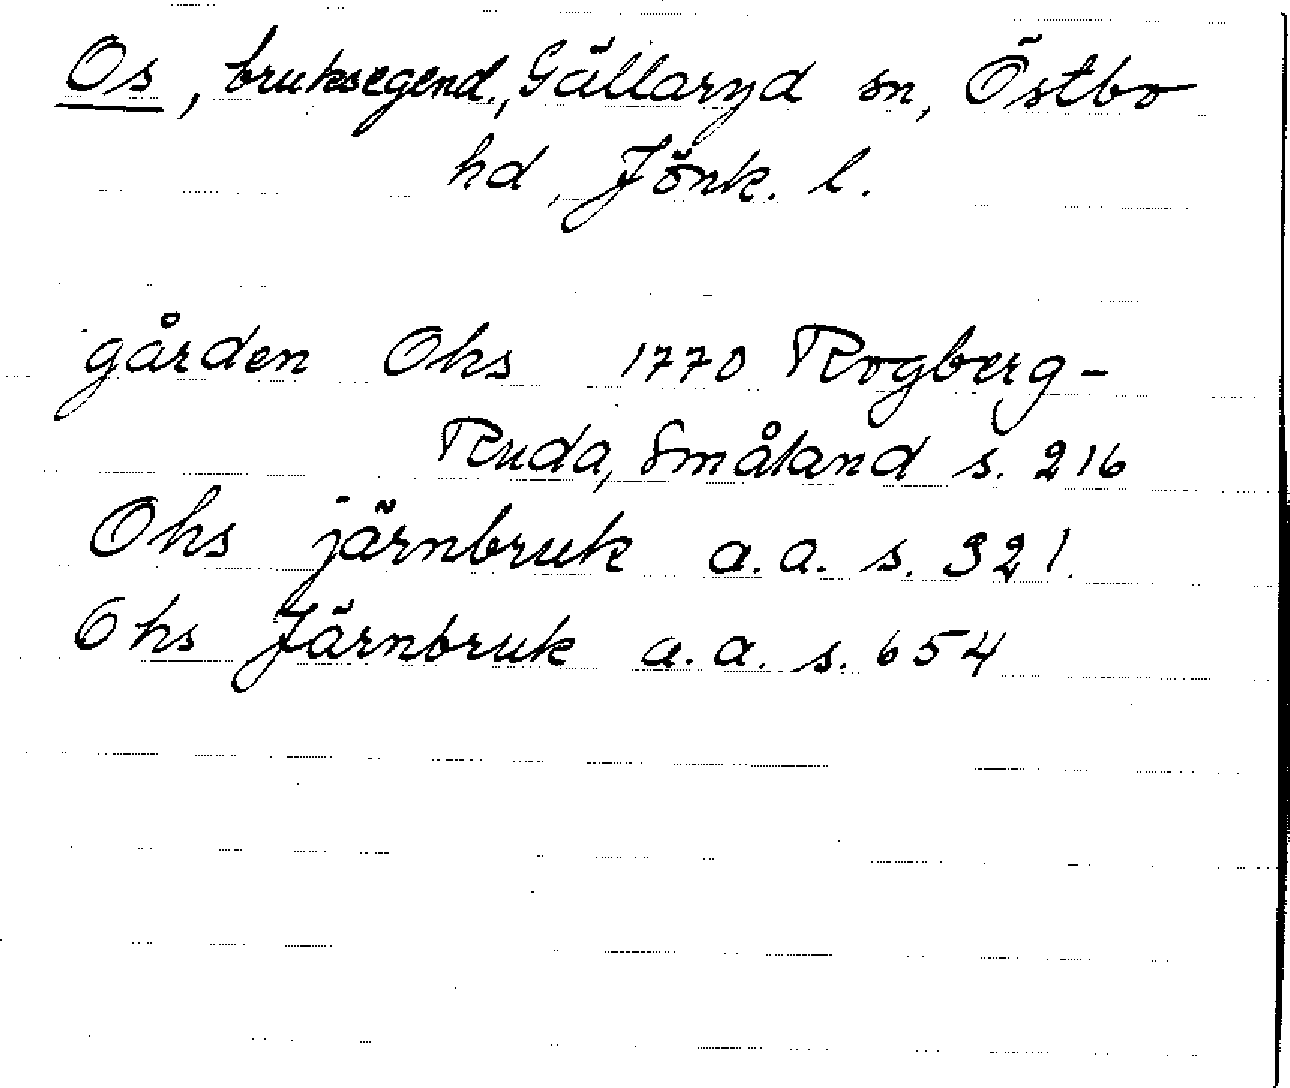 Os, bruksegend, Gällaryd sn, Östbo
hd, Jönk. l.
gården Ohs 1770 Rogberg-
Ruda, Småland s. 216
Ohs järnbruk a.a. s. 321.
Ohs Järnbruk a.a. s. 654